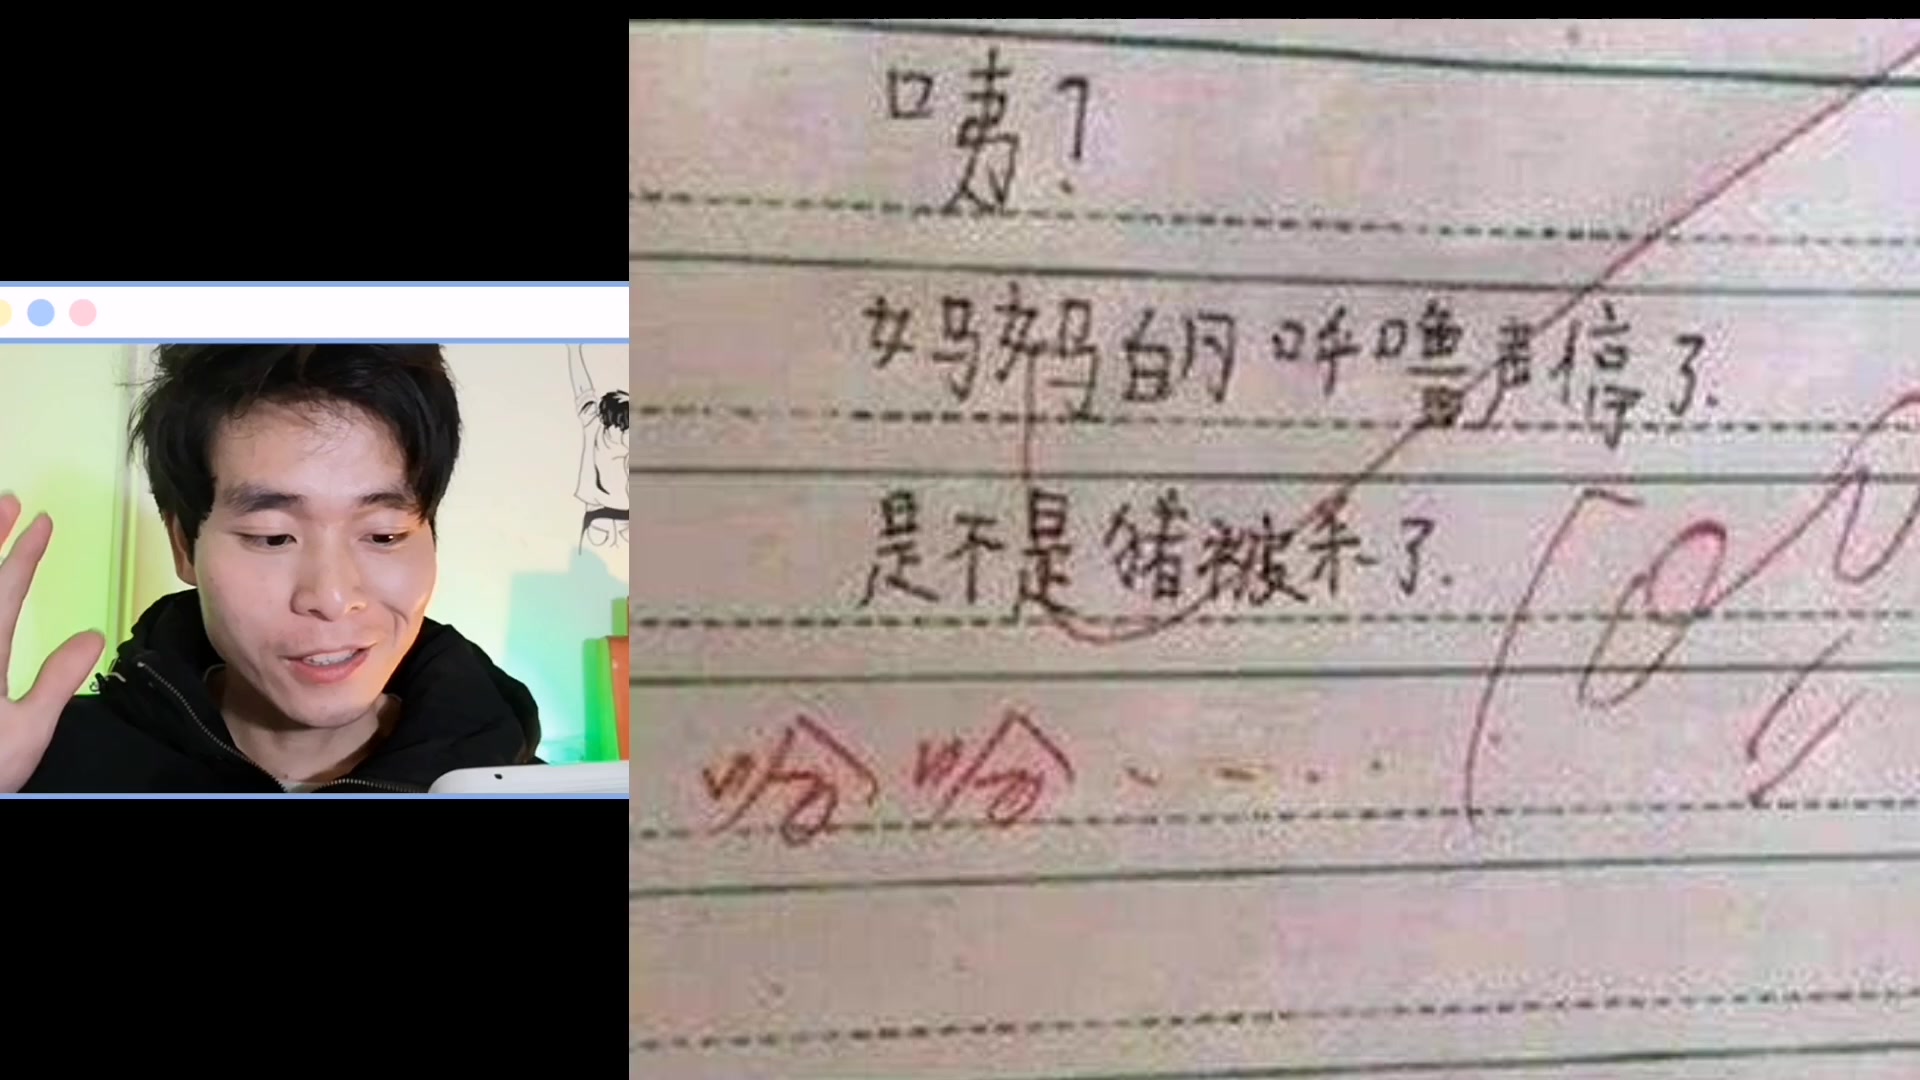 咦?
妈妈的呼噜声停了.
是不是猪被杀了.
100
哈哈·····